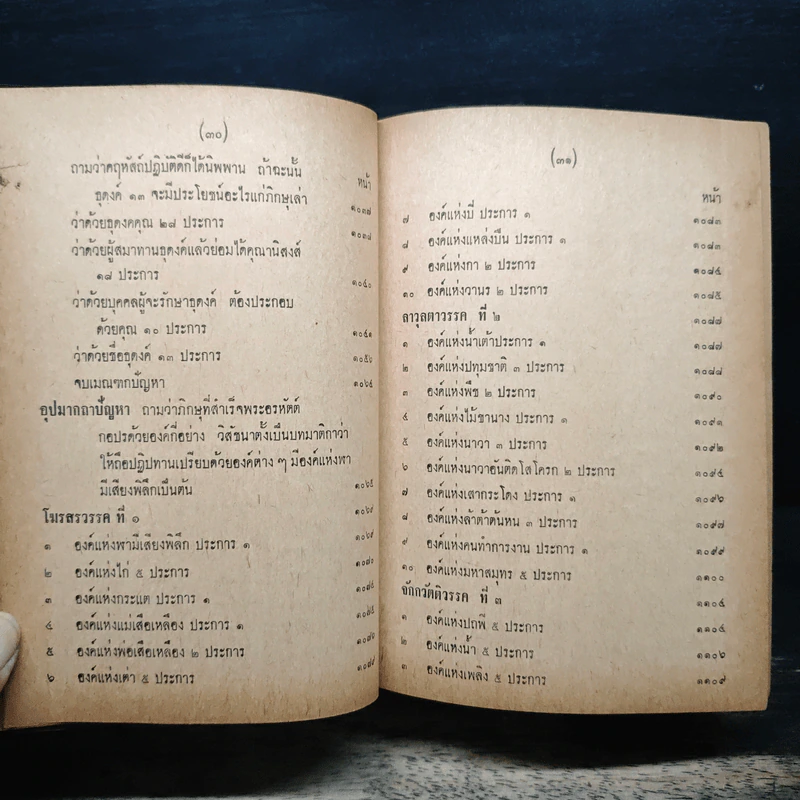 (๓๐)
หน้า
ถามว่าคฤหัสถ์ปฏิบัติดีก็ได้นิพพาน ถ้าฉะนั้น
ธุดงค์ ๑๓ จะมีประโยชน์อะไรแก่ภิกษุเล่า ๑๐๓๗
ว่าด้วยธุดงคคุณ ๒๘ ประการ ๑๐๓๘
ว่าด้วยผู้สมาทานธุดงค์แล้วย่อมได้คุณานิสงส์
๑๘ ประการ ๑๐๔๐
ว่าด้วยบุคคลผู้จะรักษาธุดงค์ ต้องประกอบ
ด้วยคุณ ๑๐ ประการ ๑๐๔๑
ว่าด้วยชื่อธุดงค์ ๑๓ ประการ ๑๐๕๖
จบเมณฑกปัญหา ๑๐๖๔
อุปมากถาปัญหา ถามว่าภิกษุที่สำเร็จพระอรหัตต์
กอปรด้วยองค์กี่อย่าง วิสัชนาตั้งเป็นบทมาติกาว่า
ให้ถือปฏิปทานเปรียบด้วยองค์ต่าง ๆ มีองค์แห่งฬา
มีเสียงพิลึกเป็นต้น ๑๐๖๕
โฆรสรวรรค ที่ ๑ ๑๐๖๙
๑ องค์แห่งฬามีเสียงพิลึก ประการ ๑ ๑๐๖๙
๒ องค์แห่งไก่ ๕ ประการ ๑๐๗๐
๓ องค์แห่งกระแต ประการ ๑ ๑๐๗๔
๔ องค์แห่งแม่เสือเหลือง ประการ ๑ ๑๐๗๕
๕ องค์แห่งพ่อเสือเหลือง ๒ ประการ ๑๐๗๖
๖ องค์แห่งเต่า ๕ ประการ ๑๐๗๙
(๓๑)
หน้า
๗ องค์แห่งปี่ ประการ ๑ ๑๐๘๓
๘ องค์แห่งแหล่งปืน ประการ ๑ ๑๐๘๓
๙ องค์แห่งกา ๒ ประการ ๑๐๘๔
๑๐ องค์แห่งวานร ๒ ประการ ๑๐๘๕
ลาวุลตาวรรค ที่ ๒ ๑๐๘๗
๑ องค์แห่งน้ำเต้าประการ ๑ ๑๐๘๗
๒ องค์แห่งปทุมชาติ ๓ ประการ ๑๐๘๘
๓ องค์แห่งพืช ๒ ประการ ๑๐๙๐
๔ องค์แห่งไม้ขานาง ประการ ๑ ๑๐๙๑
๕ องค์แห่งนาวา ๓ ประการ ๑๐๙๒
๖ องค์แห่งนาวาอันติดโสโครก ๒ ประการ ๑๐๙๔
๗ องค์แห่งเสากระโดง ประการ ๑ ๑๐๙๖
๘ องค์แห่งล้าต้าต้นหน ๓ ประการ ๑๐๙๗
๙ องค์แห่งคนทำการงาน ประการ ๑ ๑๐๙๙
๑๐ องค์แห่งมหาสมุทร ๕ ประการ ๑๑๐๐
จักกวัตติวรรค ที่ ๓ ๑๑๐๔
๑ องค์แห่งปถพี ๕ ประการ ๑๑๐๔
๒ องค์แห่งน้ำ ๕ ประการ ๑๑๐๖
๓ องค์แห่งเพลิง ๕ ประการ ๑๑๐๙